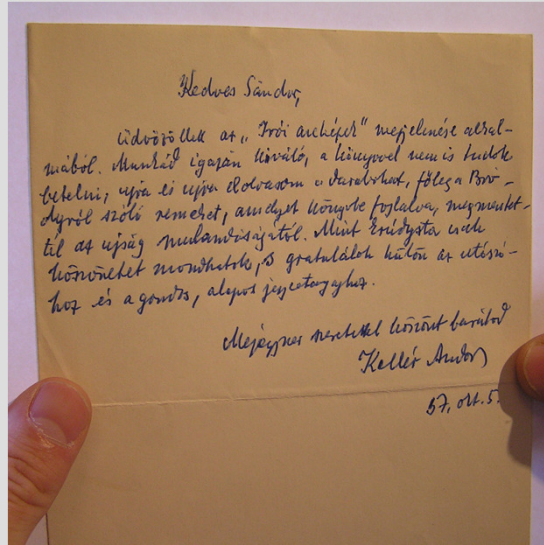 Kedves Sándor,
üdvözöllek az „Irói arcképek” megjelenése alkal-
mából. Munkád igazán kiváló, a könyvvel nem is tudok
betelni, ujra és ujra elolvasom a darabokat, főleg a Bró-
dyról szóló remeket, amelyet könyvbe foglalva, megmentet-
tél az ujság mulandóságától. Mint Bródysta csak
köszönetet mondhatok, s gratulálok külön az utószó-
hoz és a gondos, alapos jegyzetanyaghoz.
Mégegyszer szeretettel köszönt barátod
Kellér Andor
57. okt. 5.